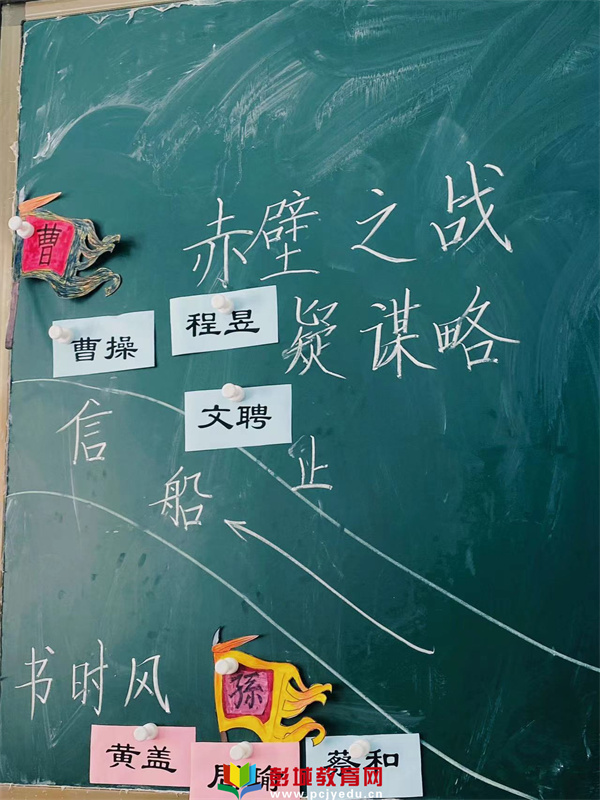 赤壁之战
曹
程昱
曹操
疑谋略
文聘
信
止
船
书时风
孫
黄盖
周瑜
蔡和
彭城教育网
www.pcjyedu.cn